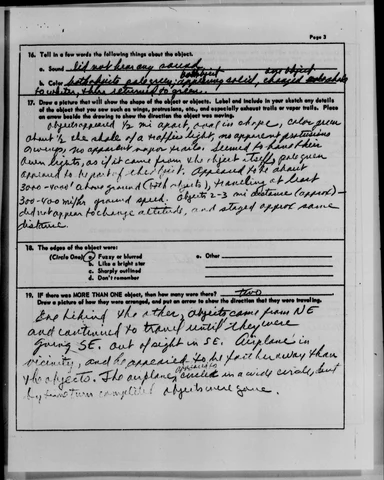 Page 3
16. Tell in a few words the following things about the object.
a. Sound did not hear any sound
b. Color both objects pale green, appearing solid, changed
to white, then returned to green.
17. Draw a picture that will show the shape of the object or objects. Label and include in your sketch any details
of the object that you saw such as wings, protrusions, etc., and especially exhaust trails or vapor trails. Place
an arrow beside the drawing to show the direction the object was moving.
Objects appeared 1/2 mi apart, and in shape, color green
about 1/2 the shade of a traffic light, no apparent protrusions
or wings, no apparent vapor trails. Seemed to have their
own lights, as if it came from the object itself, pale green
appeared to be part of the object. Appeared to be about
3000-4000' above ground (both objects), travelling at least
300-400 mi/hr ground speed. Objects 2-3 mi distance (approx) -
did not appear to change altitude, and stayed approx same
distance.
18. The edges of the object were:
(Circle One) a. Fuzzy or blurred
e. Other
b. Like a bright star
c. Sharply outlined
d. Don't remember
19. IF there was MORE THAN ONE object, then how many were there? two
Draw a picture of how they were arranged, and put an arrow to show the direction that they were traveling.
One behind the other, objects came from NE
and continued to travel until they were
going SE. Out of sight in SE. Airplane in
vicinity, and he appeared to be farther away than
the objects. The airplane appeared to circle in a wide circle, but
by time turn completed objects were gone.